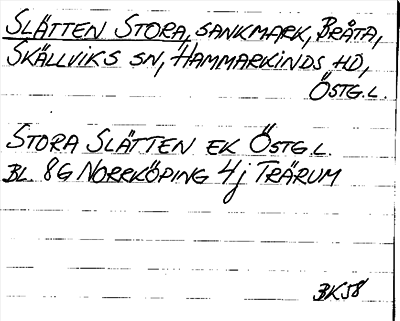 SLÄTTEN STORA, SANKMARK, BRÅTA,
SKÄLLVIKS SN, HAMMARKINDS HD,
ÖSTG.L.
STORA SLÄTTEN EK ÖSTG L.
BL. 8G NORRKÖPING 4j TRÄRUM
BK58